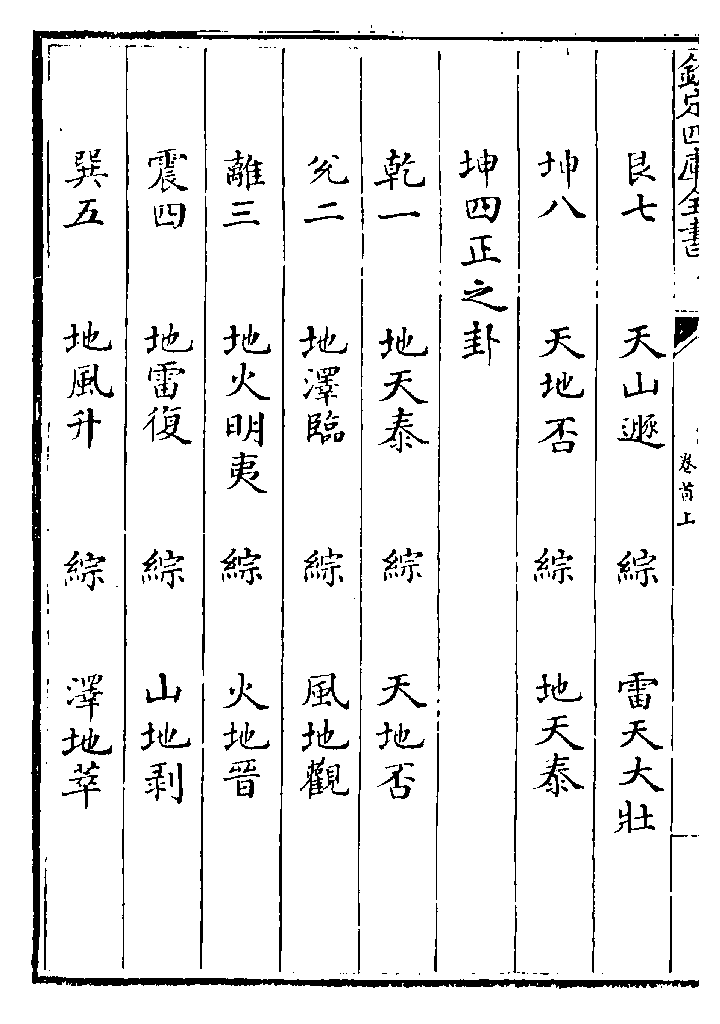 欽定四庫全書
卷首上
艮七 天山遯 綜 雷天大壯
坤八 天地否 綜 地天泰
坤四正之卦
乾一 地天泰 綜 天地否
兊二 地澤臨 綜 風地觀
離三 地火明夷 綜 火地晉
震四 地雷復 綜 山地剥
巽五 地風升 綜 澤地萃